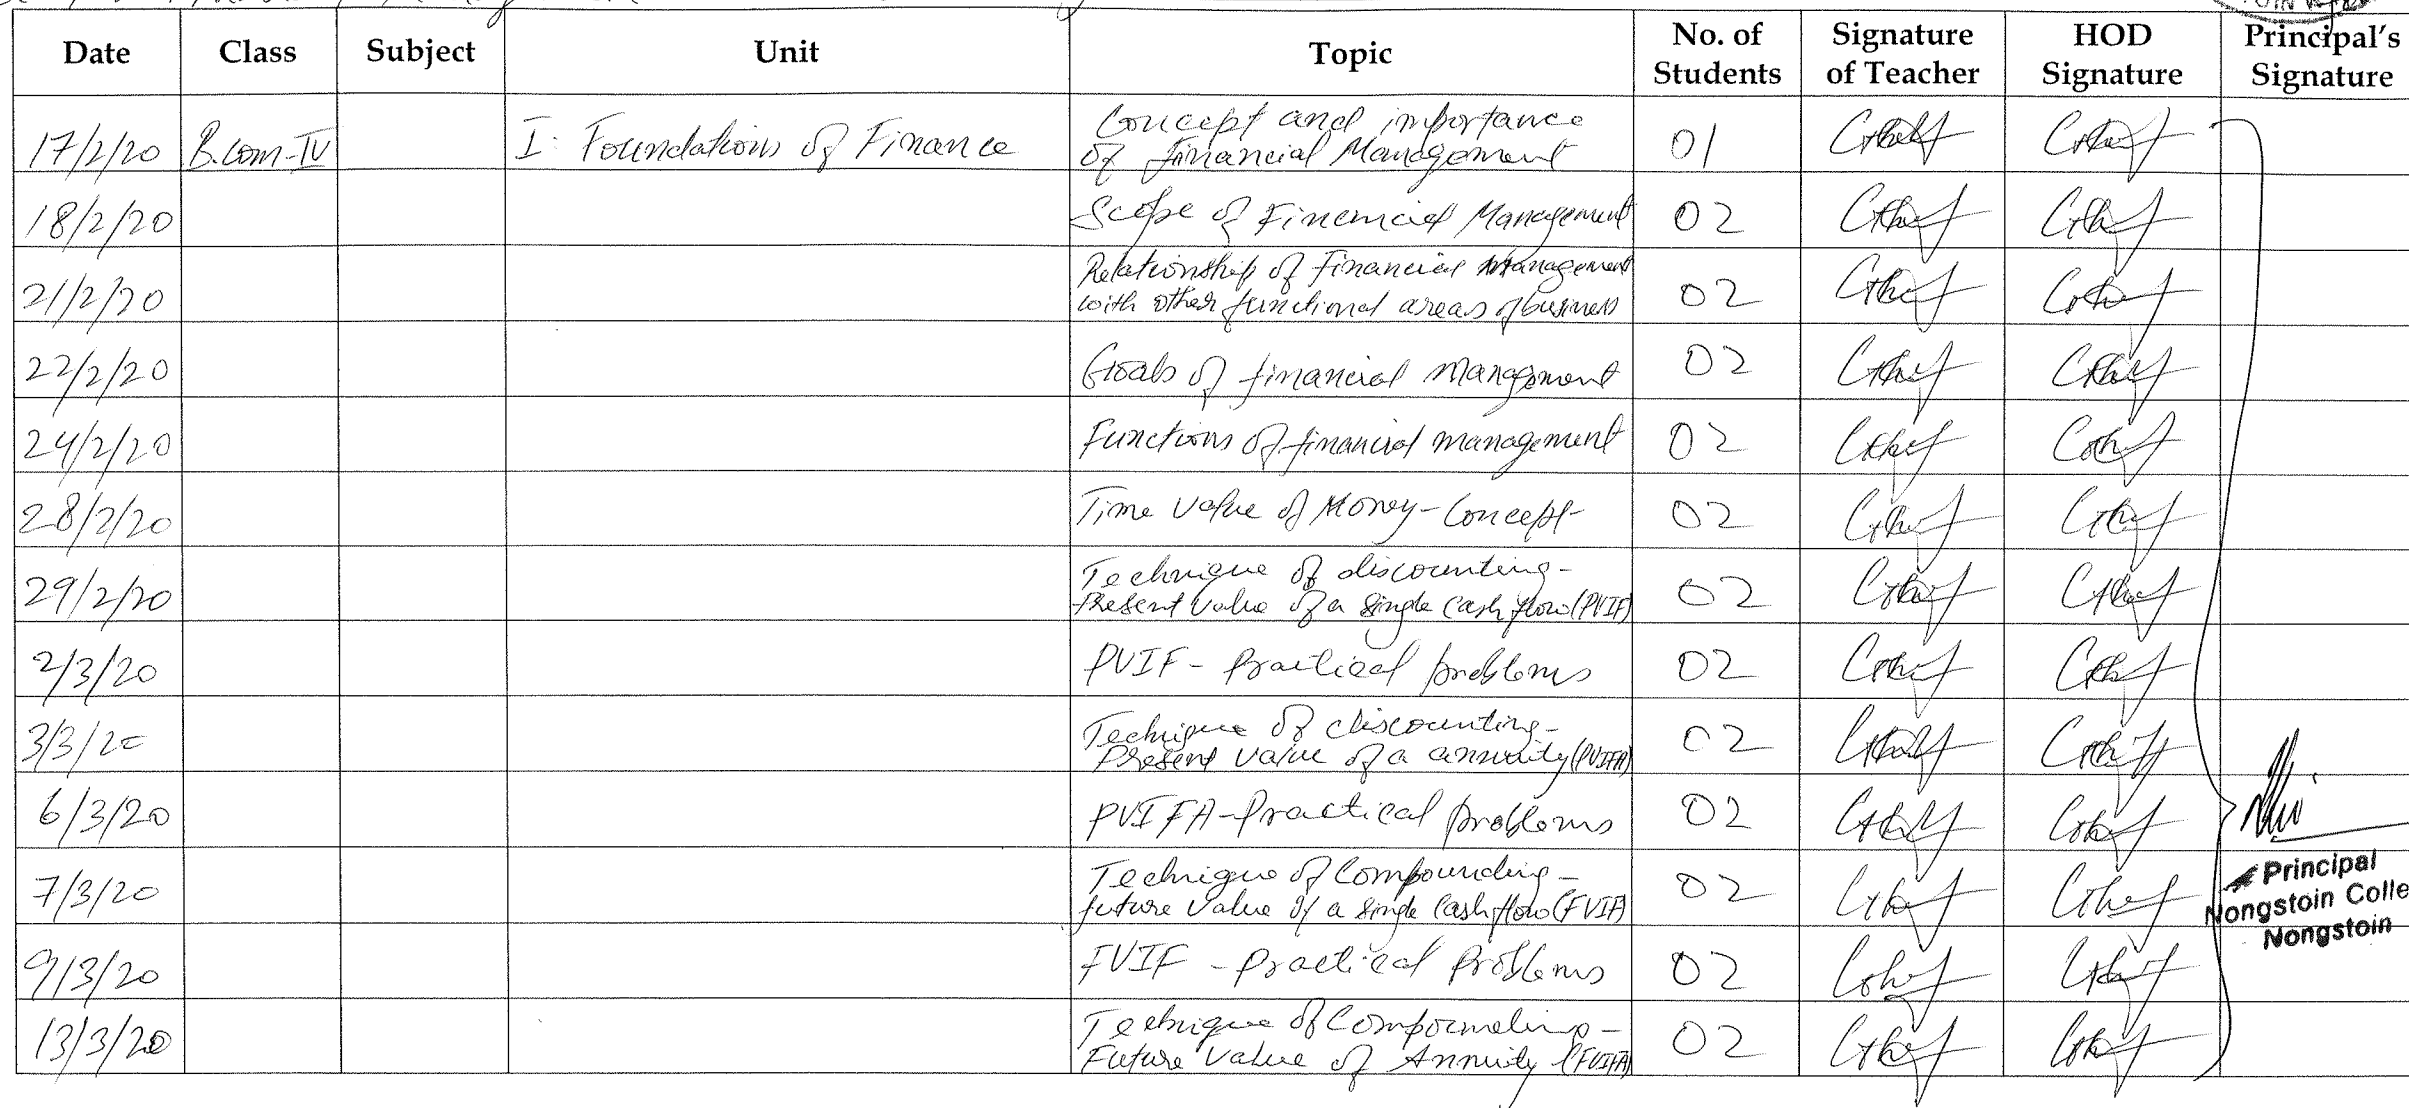 Date Class Subject Unit Topic No. of Students Signature of Teacher HOD Signature Principal's Signature
17/2/20 B.com-IV I. Foundations of Finance Concept and importance
of financial Management 01
18/2/20 Scope of Financial Management 02
21/2/20 Relationship of Financial Management
with other functional areas of business 02
22/2/20 Goals of financial management 02
24/2/20 Functions of financial management 02
28/2/20 Time value of Money-Concept- 02
29/2/20 Technique of discounting-
Present value of a single cash flow (PVIF) 02
2/3/20 PVIF- Practical problems 02
3/3/20 Technique of discounting-
Present value of a annuity (PVIFA) 02
6/3/20 PVIFA-Practical problems 02
7/3/20 Technique of Compounding-
future value of a single cash flow (FVIF) 02
9/3/20 FVIF - Practical Problems 02
13/3/20 Technique of Compounding-
Future Value of Annuity (FVIFA) 02
Principal
Nongstoin Colle
Nongstoin